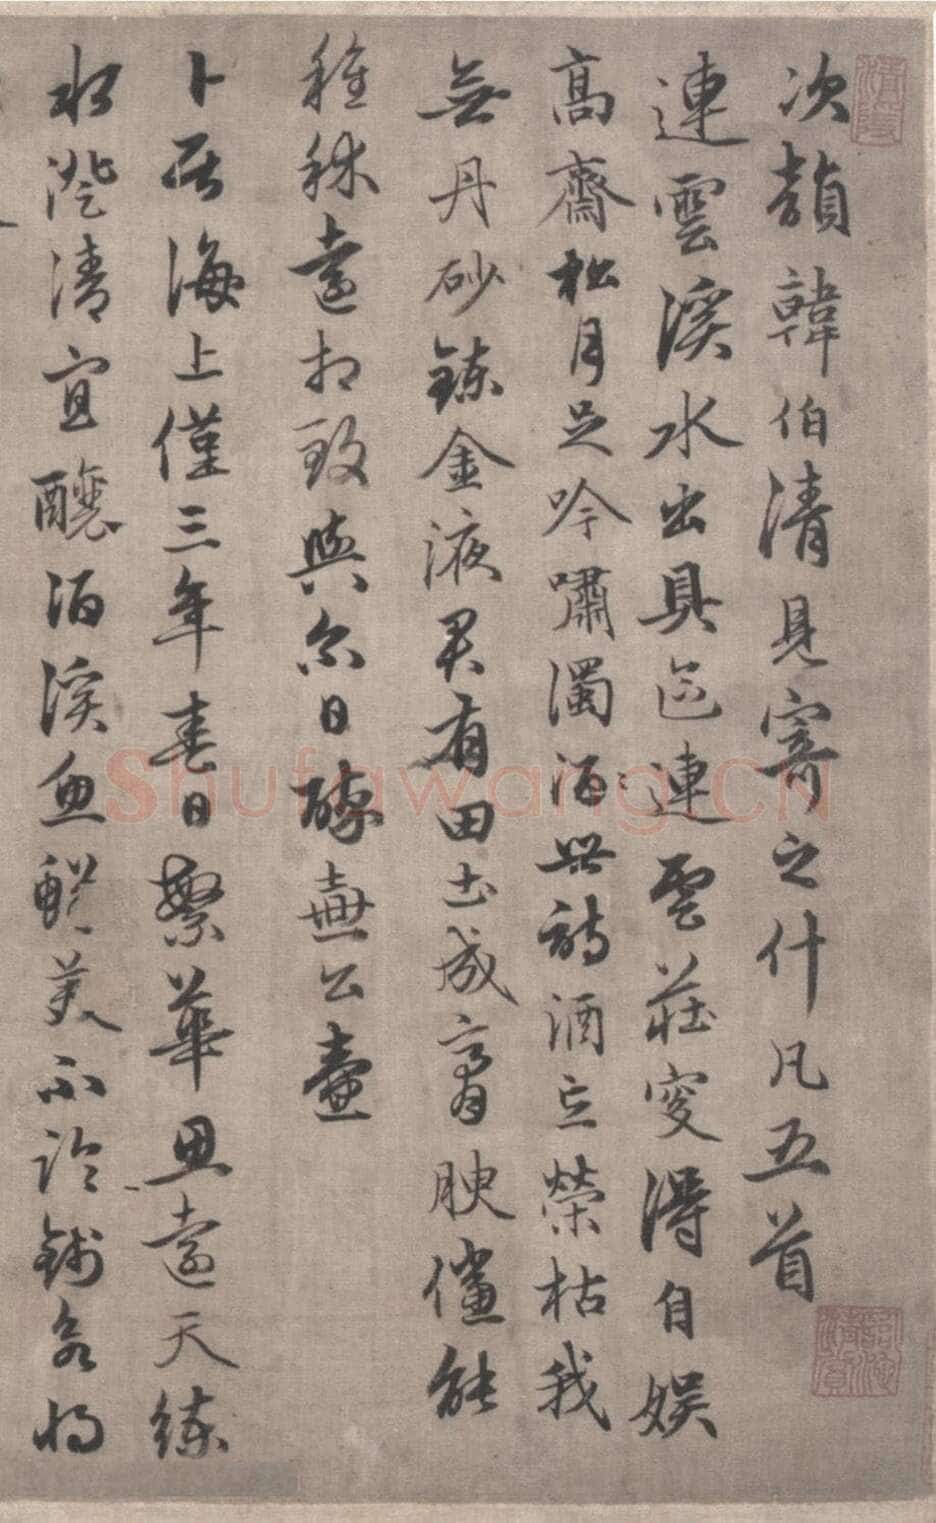 次韻韓伯清見寄之什凡五首
連雲溪水出具區連雲莊叟得自娛
高齋松月足吟嘯濁酒無詩酒忘榮枯我
無丹砂鍊金液君有田土成膏腴儻能
種秫遠相致與爾日醉壺公壺
卜居海上僅三年春日繁華思遠天練
水澄清宜釀酒溪魚鮮美不論錢家將
Shufawang.CN